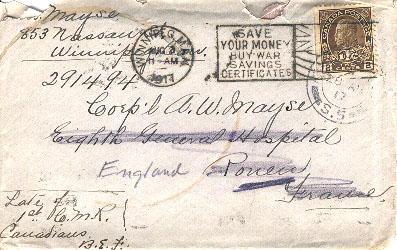 Mayse
853 Nassau
Winnipeg
WINNIPEG MAN.
AUG 3
11-AM
1917
SAVE
YOUR MONEY
BUY WAR
SAVINGS
CERTIFICATES
291494
Corp'l A.W. Mayse
Eighth General Hospital
England Rouen
France
Late of
1st C.M.R.
Canadians
B.E.F.